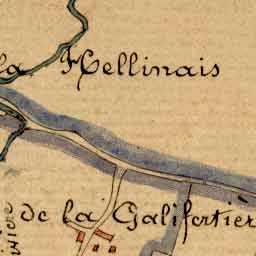 la Hellinais
de la Galifertièr